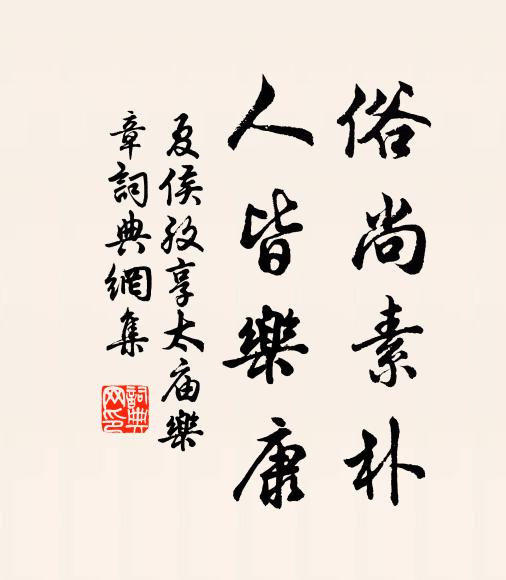 俗尚素朴
人皆樂康
夏侯孜享太庙樂
章詞典網集
詞典
网印